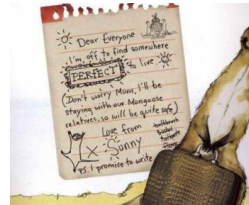 Dear Everyone
I'm off to find somewhere
PERFECT to live
(Don't worry Mum, I'll be
staying with our Mongoose
relatives, so will be quite safe)
Love from
X Sonny
PS. I promise to write
toothbrush